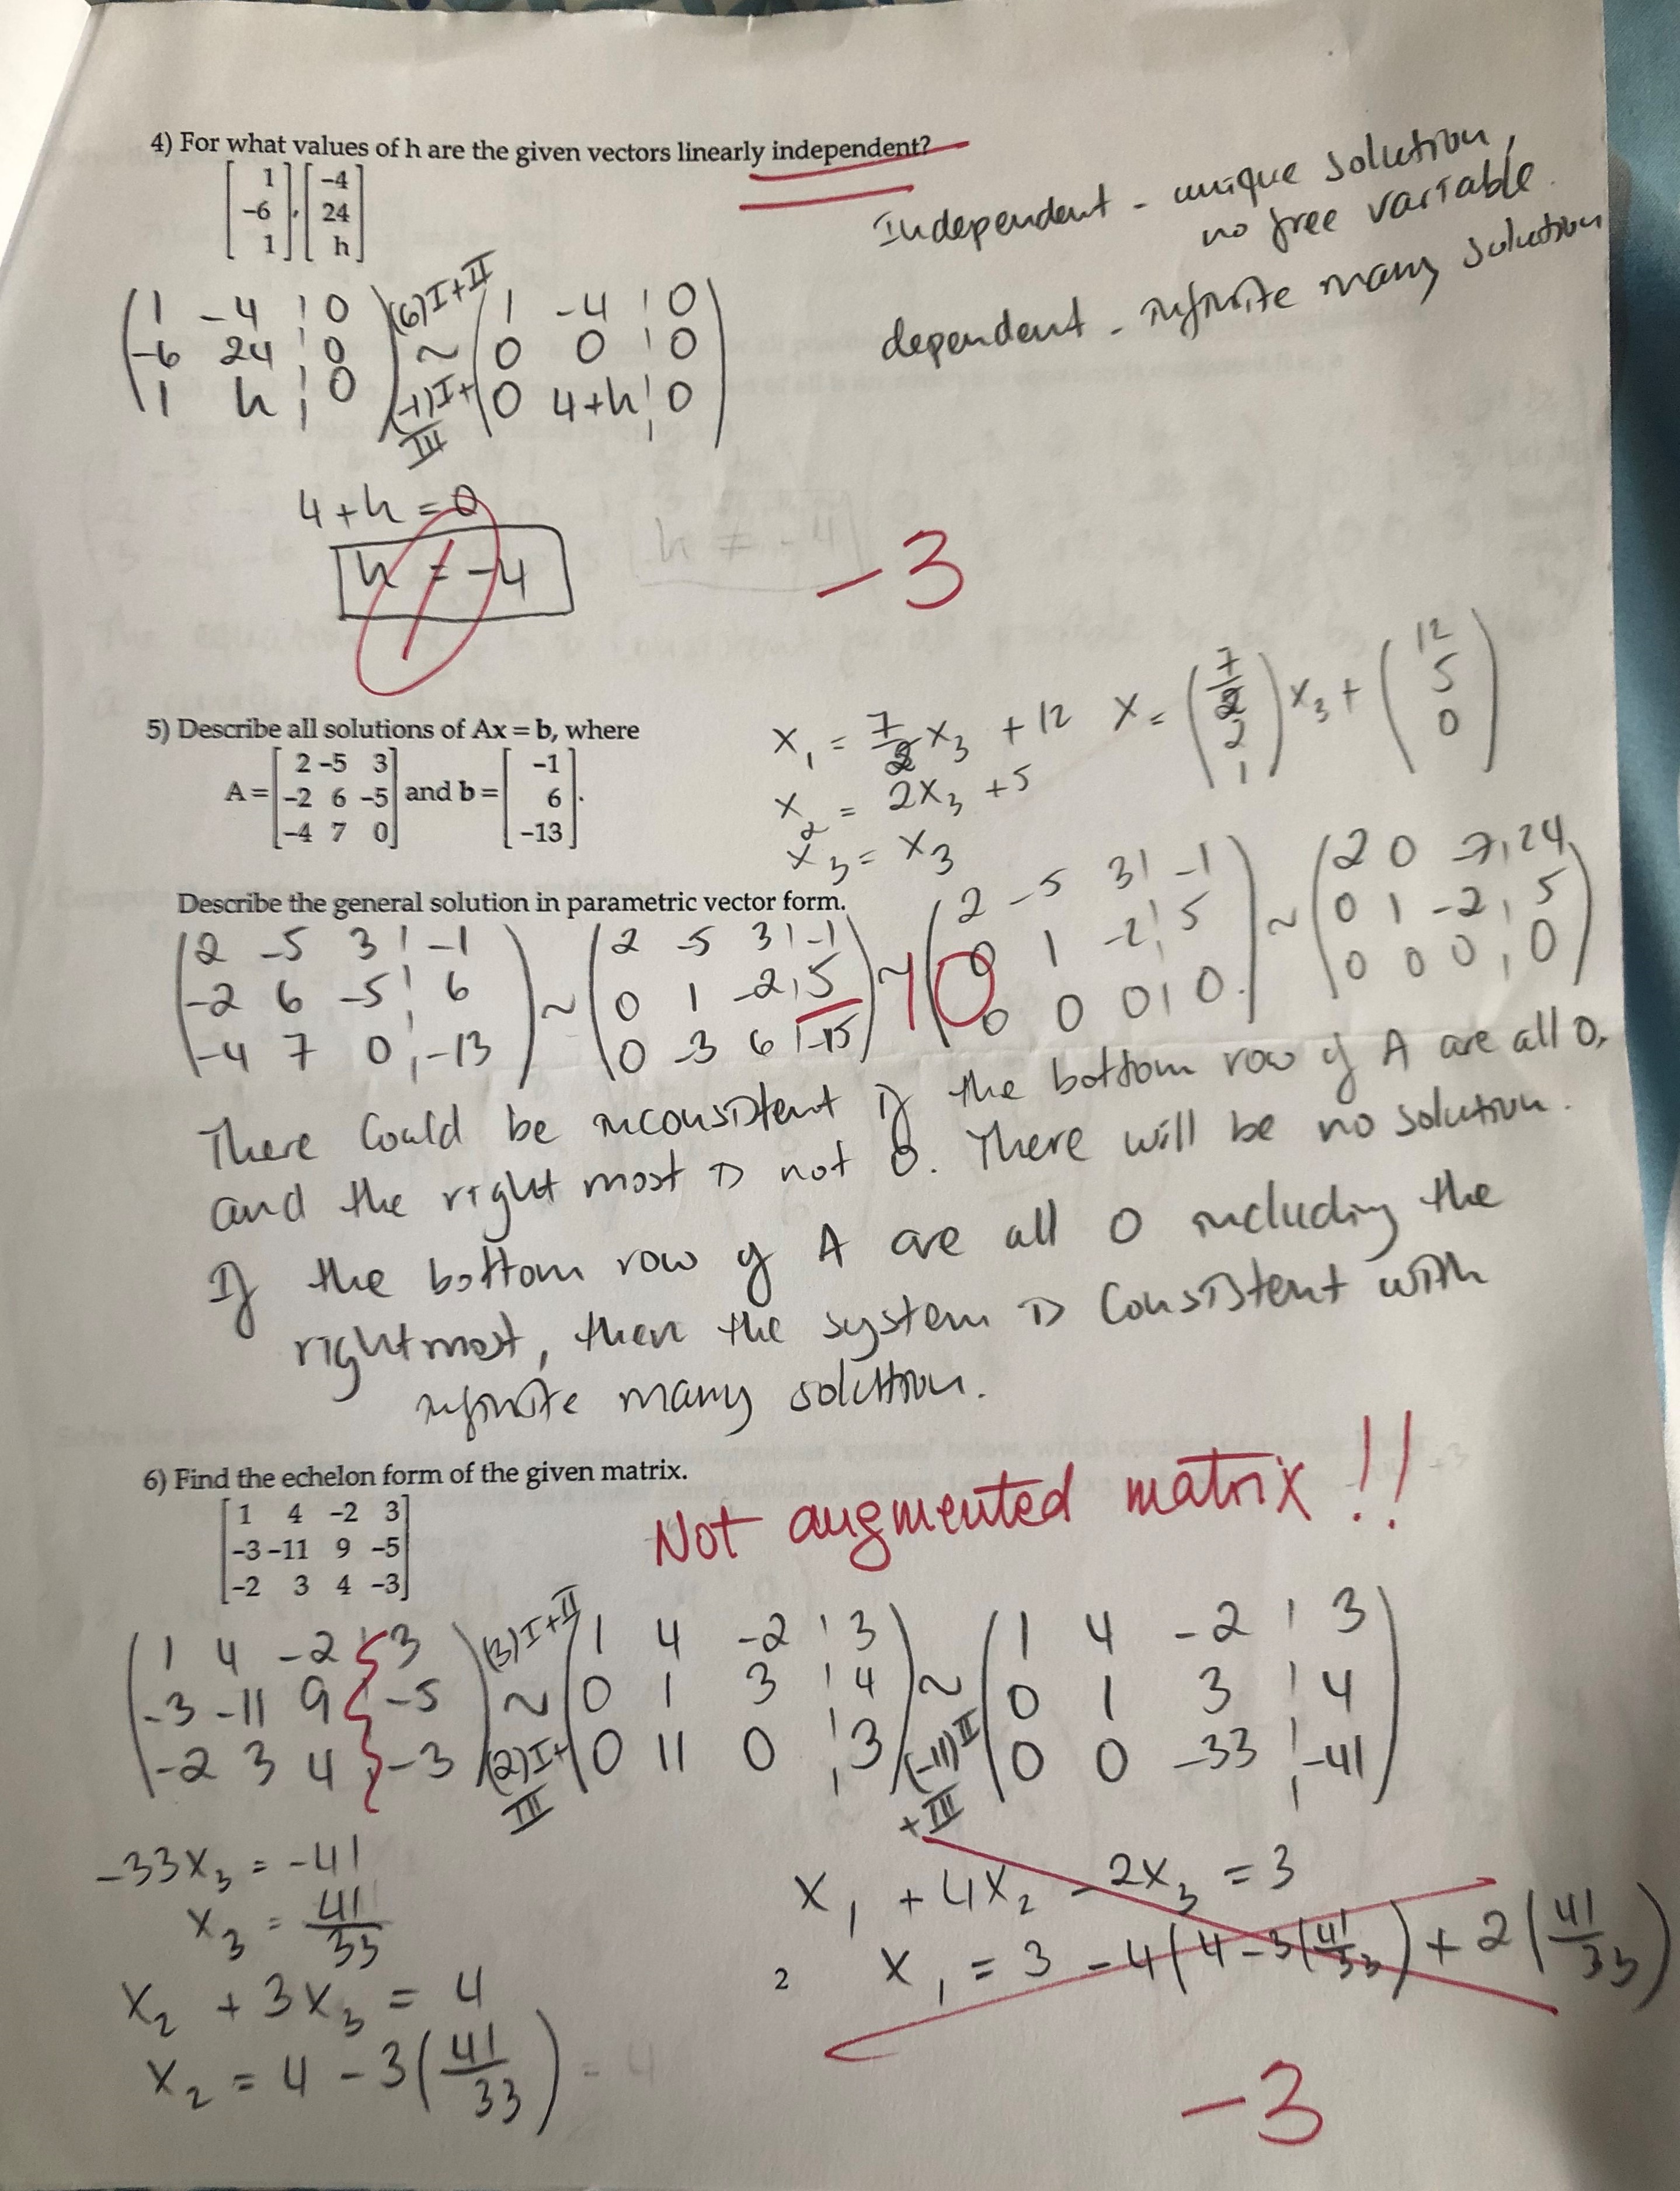 4) For what values of h are the given vectors linearly independent?
[ 1] [-4]
[-6] , [24]
[ 1] [ h]
Independent - unique solution,
no free variable.
dependent - infinite many solution
( 1 -4 | 0 ) (6)I+II ( 1 -4 | 0 )
( -6 24 | 0 ) ~ ( 0 0 | 0 )
( 1 h | 0 ) (-1)I+III ( 0 4+h | 0 )
4+h = 0
h = -4
h ≠ -4
-3
5) Describe all solutions of Ax = b, where
A = [ 2 -5 3 ] and b = [ -1 ]
[ -2 6 -5 ] [ 6 ]
[ -4 7 0 ] [ -13 ].
x₁ = 7/2 x₃ + 12
x₂ = 2x₃ + 5
x₃ = x₃
x = ( 7/2 ) x₃ + ( 12 )
( 2 ) ( 5 )
( 1 ) ( 0 )
Describe the general solution in parametric vector form.
( 2 -5 3 | -1 ) ( 2 -5 3 | -1 ) ( 2 -5 3 | -1 ) ( 2 0 -7 | 24 )
( -2 6 -5 | 6 ) ~ ( 0 1 -2 | 5 ) ~ ( 0 1 -2 | 5 ) ~ ( 0 1 -2 | 5 )
( -4 7 0 | -13 ) ( 0 -3 6 | -15 ) ( 0 0 0 | 0 ) ( 0 0 0 | 0 )
There could be inconsistent if the bottom row of A are all 0,
and the right most is not 0. There will be no solution.
If the bottom row of A are all 0 including the
rightmost, then the system is consistent with
infinite many solution.
6) Find the echelon form of the given matrix.
[ 1 4 -2 3 ]
[ -3 -11 9 -5 ]
[ -2 3 4 -3 ]
Not augmented matrix !!
( 1 4 -2 | 3 ) (3)I+II ( 1 4 -2 | 3 ) ( 1 4 -2 | 3 )
( -3 -11 9 | -5 ) ~ ( 0 1 3 | 4 ) ~ ( 0 1 3 | 4 )
( -2 3 4 | -3 ) (2)I+III ( 0 11 0 | 3 ) (-11)II+III ( 0 0 -33 | -41 )
-33x₃ = -41
x₃ = 41/33
x₂ + 3x₃ = 4
x₂ = 4 - 3(41/33) = 4
x₁ + 4x₂ - 2x₃ = 3
x₁ = 3 - 4(4 - 3(41/33)) + 2(41/33)
2
-3